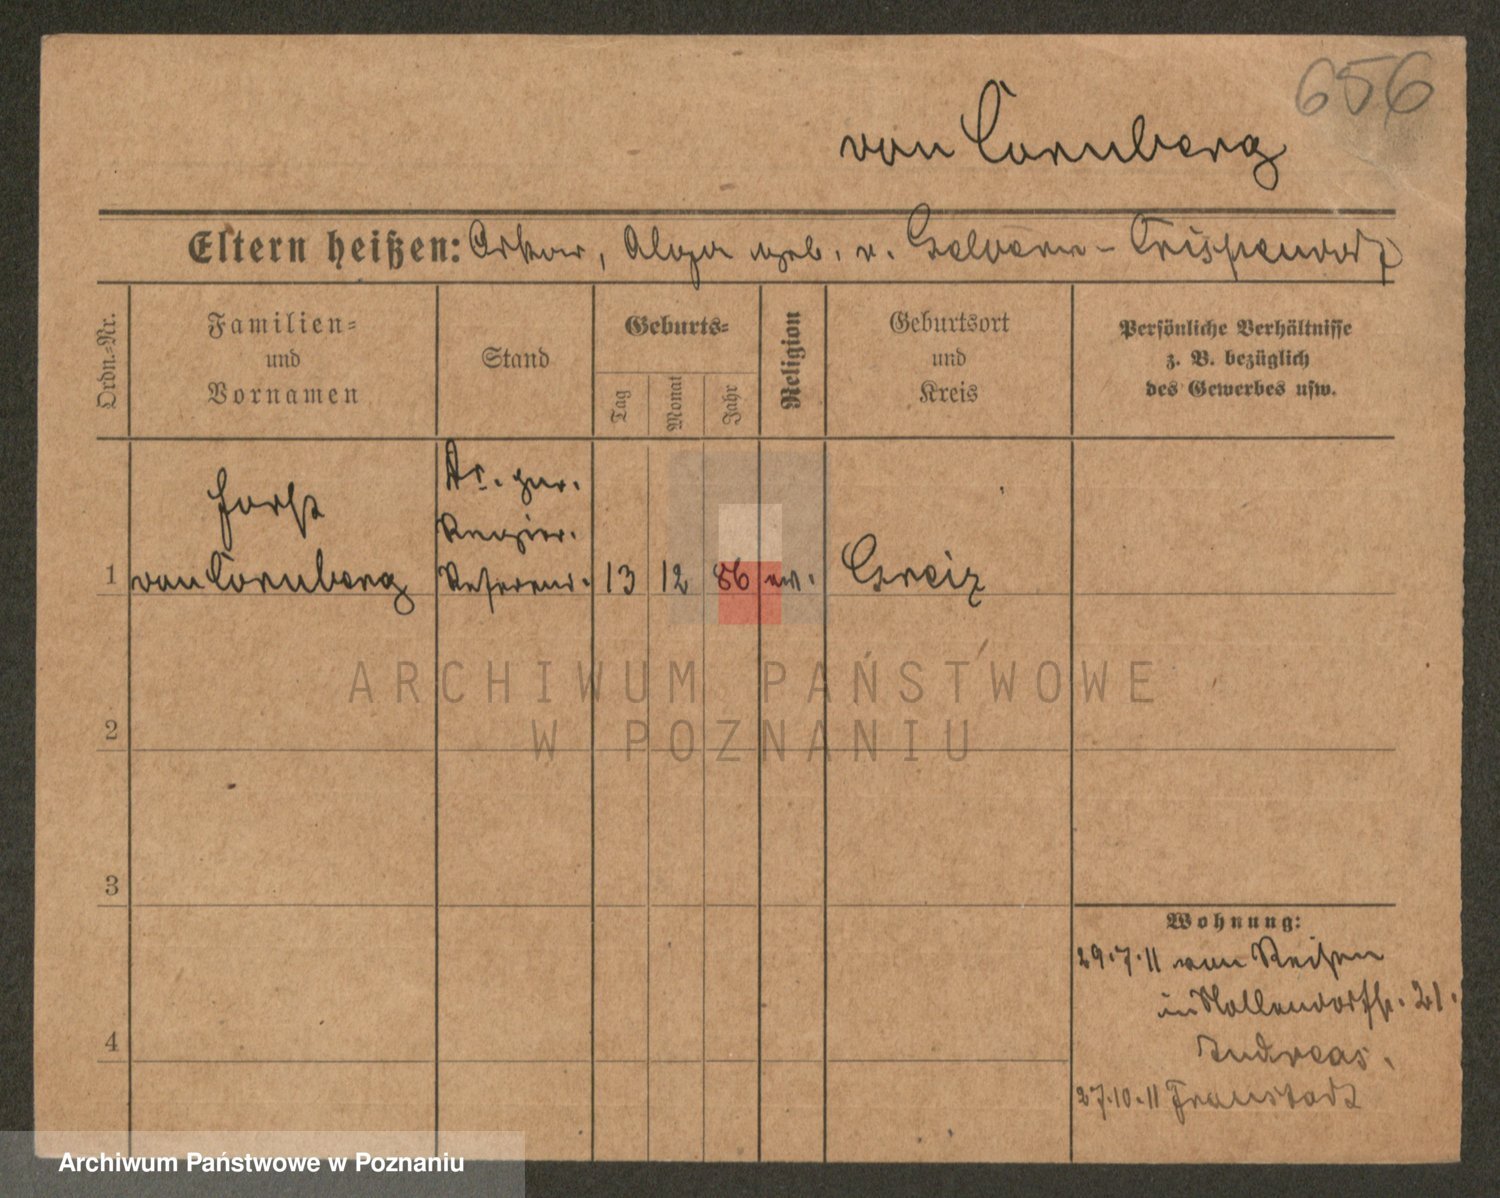 656
von Cornberg
Eltern heißen: Oskar, Olga geb. v. Geldern-Crispendorf
Ordn.=Nr.
Familien=
und
Vornamen
Stand
Geburts=
Tag
Monat
Jahr
Religion
Geburtsort
und
Kreis
Persönliche Verhältnisse
z. B. bezüglich
des Gewerbes usw.
1
Horst
von Cornberg
Dr. jur.
Regier.
Referend.
13
12
86
ev.
Greiz
2
3
4
Wohnung:
29.7.11 von Reisen
in Nollendorfstr. 21.
Andreas.
27.10.11 Fraustadt
ARCHIWUM PAŃSTWOWE
W POZNANIU
Archiwum Państwowe w Poznaniu